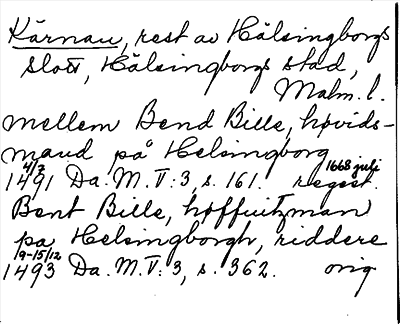 Kärnan, rest av Hälsingborgs
slott, Hälsingborgs stad,
Malm. l.
mellem Bend Bille, høvids-
mand på Helsingborg
4/2 1668 juli
1491 Da. M. V:3, s. 161. regest
Bent Bille, høffuitzman
pa Helsingborgh, riddere
19-15/12
1493 Da. M. V:3, s. 362. orig